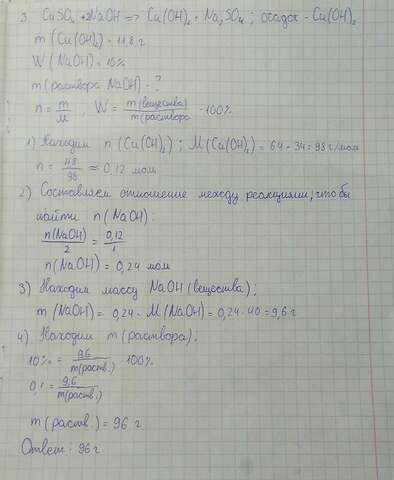 3. CuSO₄ + 2NaOH => Cu(OH)₂ + Na₂SO₄; осадок - Cu(OH)₂
m(Cu(OH)₂) = 11,8 г
W(NaOH) = 10%
m(раствора NaOH) - ?
n = m/M , W = m(вещества)/m(раствора · 100%
1) Находим n(Cu(OH)₂); M(Cu(OH)₂) = 64 + 34 = 98 г/мол
n = 11,8/98 ≈ 0,12 мол
2) Составляем отношение между реакциями, чтобы
найти n(NaOH):
n(NaOH)/2 = 0,12/1
n(NaOH) = 0,24 мол
3) Находим массу NaOH (вещества);
m(NaOH) = 0,24 · M(NaOH) = 0,24 · 40 = 9,6 г
4) Находим m(раствора):
10% = 9,6/m(раств.) · 100%
0,1 = 9,6/m(раств.)
m(раств.) = 96 г
Ответ: 96 г